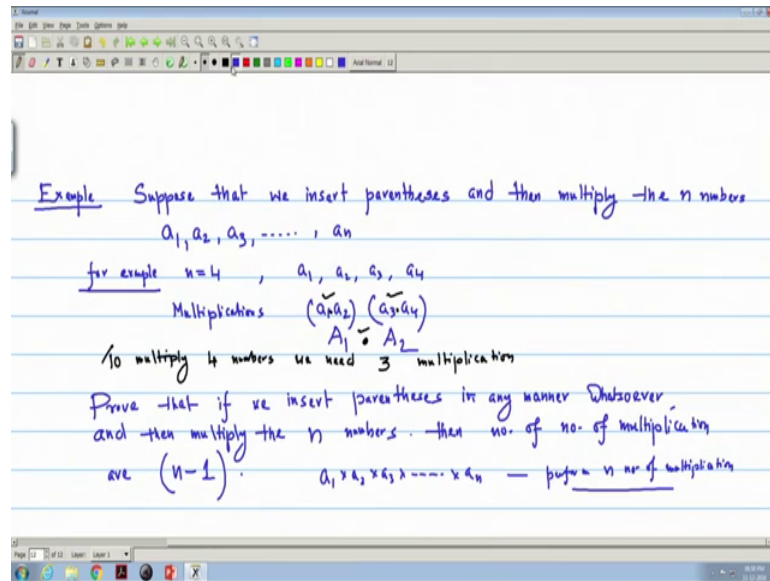 Journal
File Edit View Page Tools Options Help
Arial Normal 12
Exemple Suppose that we insert parentheses and then multiply the n numbers
a1, a2, a3, ....., an
for exemple n=4 , a1, a2, a3, a4
Multiplications (a1.a2) (a3.a4)
A1 . A2
To multiply 4 numbers we need 3 multiplication
Prove that if we insert parentheses in any manner Whatsoever
and then multiply the n numbers. then no. of no. of multiplication
are (n-1). a1 x a2 x a3 x ---- x an — perform n no. of multiplication
Page 12 of 12 Layer: Layer 1